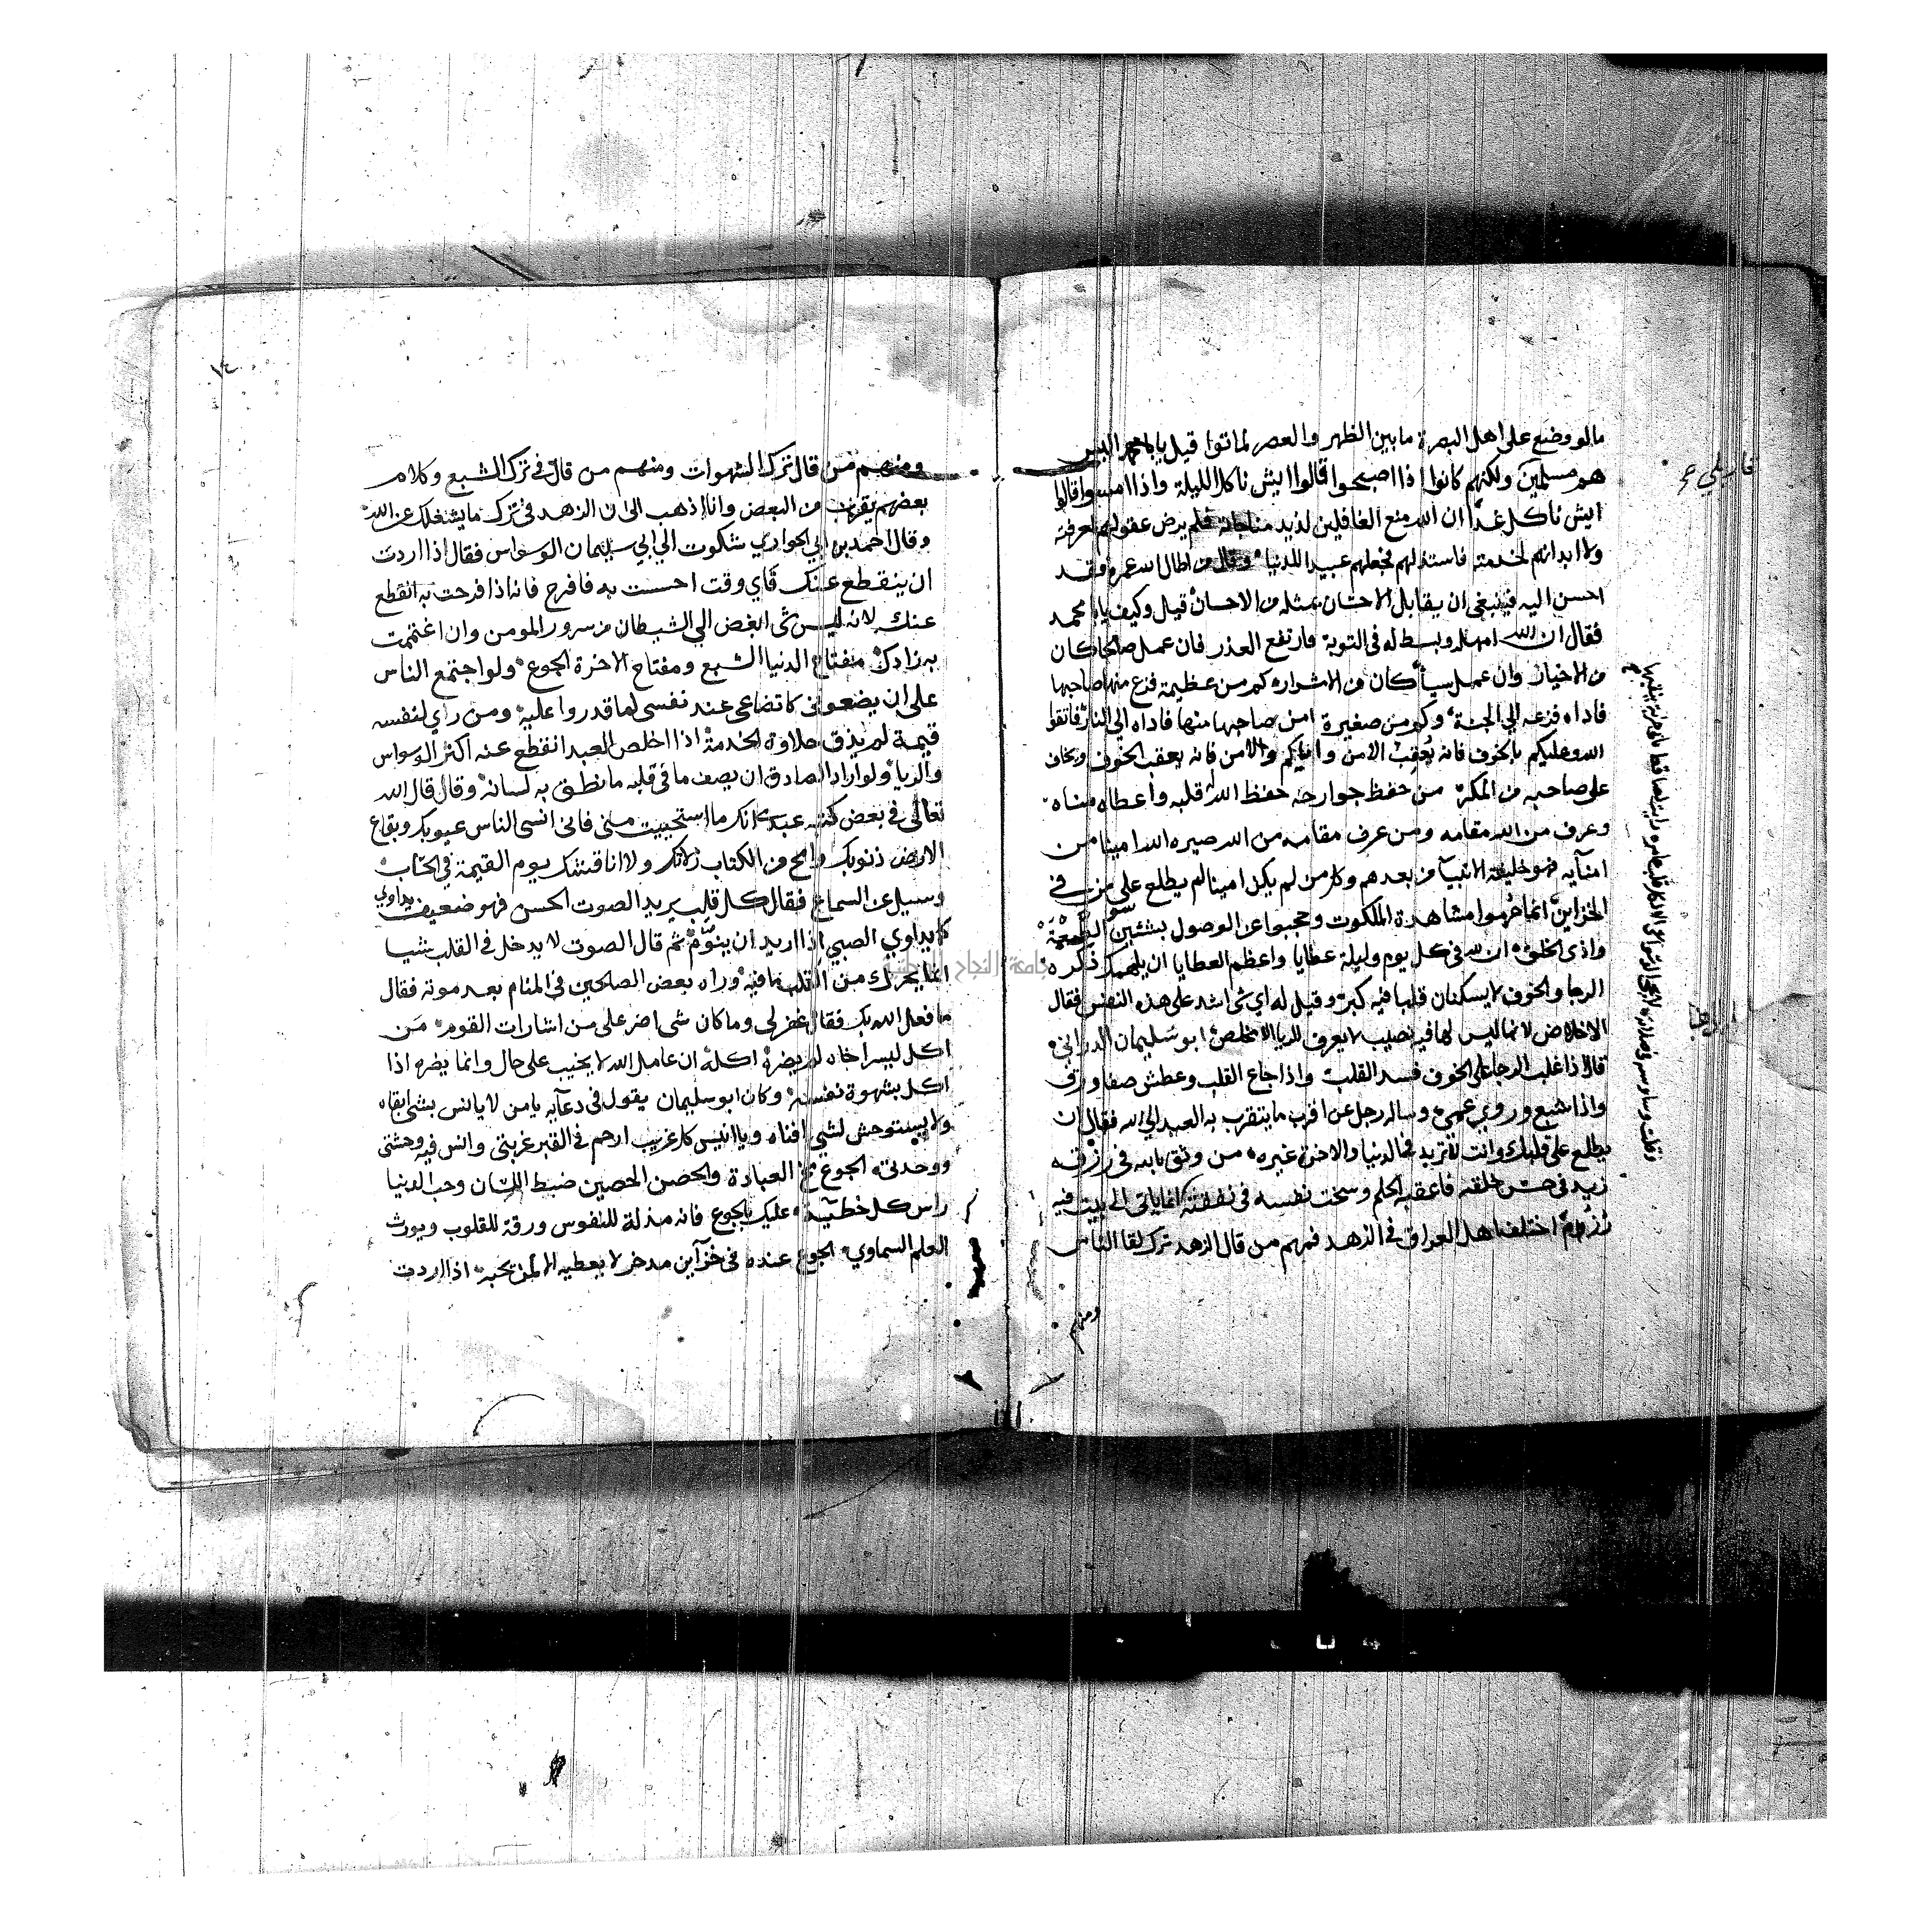 مالو وضع على اهل البصرة ما بين الظهر والعصر لماتوا قيل يابا محمد اليس
هم مسلمين ولكنهم كانوا اذا اصبحوا قالوا ايش ناكل الليلة واذا امسوا قالوا
ايش ناكل غدا ان الله منع الغافلين لذيذ مناجاته فلم يرض عقولهم لمعرفته
ولا ابدانهم لخدمته فاستذلهم فجعلهم عبيد اللدنيا وقال من اطال الله عمره فقد
احسن اليه فينبغى ان يقابل الاحسان بمثله من الاحسان قيل وكيف يابا محمد
فقال ان الله امهله وبسط له فى التوبة فارتفع العذر فان عمل صالحا كان
من الاخيار وان عمل سيأ كان من الاشرار كم من عظيمة فزع منها صاحبها
فاداه فزعه الي الجنة وكم من صغيرة امن صاحبها منها فاداه الي النار فاتقوا
الله وعليكم بالخوف فانه يعقب الامن واياكم والامن فانه يعقب الخوف ويخاف
على صاحبه من المكر من حفظ جوارحه حفظ الله قلبه واعطاه مناه
وعرف من الله مقامه ومن عرف مقامه من الله صيره الله امينا من
امنآيه فهو خليفة الانبيآ من بعدهم وكل من لم يكن امينا لم يطلع على من في
الخزاين انما حرموا مشاهدة الملكوت وحجبوا عن الوصول بشئين سو
واذى الخلق ان لله فى كل يوم وليلة عطايا واعظم العطايا ان يلهمك ذكره
الرجا والخوف لا يسكنان قلبا فيه كبر وقيل له اي شى اشد على هذه النفس فقال
الاخلاص لانها ليس لها فيه نصيب لا يعرف الريا الا مخلص ابو سليمان الدراني
قال اذا غلب الرجا على الخوف فسد القلب واذا جاع القلب وعطش صفا ورق
واذا شبع وروي عمى وساله رجل عن اقرب ما يتقرب به العبد الي الله فقال ان
يطلع على قلبك وانت لا تريد فى الدنيا والاخرة غيره من وثق بالله فى رزقه
زيد فى حسن خلقه فاعقبه الحلم وسخت نفسه فى نفقته
اختلف اهل العراق فى الزهد فمنهم من قال الزهد ترك لقا الناس
ومنهم
ومنهم من قال ترك الشهوات ومنهم من قال في ترك الشبع وكلام
بعضهم يقرب من البعض وانا اذهب الى ان الزهد فى ترك ما يشغلك عن الله
وقال احمد بن ابي الحواري شكوت الي ابي سليمان الوسواس فقال اذا اردت
ان ينقطع عنك فاي وقت احسست به فافرح فانه اذا فرحت به انقطع
عنك لانه ليس شى ابغض الي الشيطان من سرور المومن وان اغتممت
به زادك مفتاح الدنيا الشبع ومفتاح الاخرة الجوع ولو اجتمع الناس
على ان يضعونى كاتضاعى عند نفسى لما قدروا عليه ومن راي لنفسه
قيمة لم يذق حلاوة الخدمة اذا اخلص العبد انقطع عنه اكثر الوسواس
والريا ولو اراد الصادق ان يصف ما فى قلبه ما نطق به لسانه وقال قال الله
تعالى فى بعض كتبه عبدى انك ما استحييت منى فانى انسى الناس عيوبك وبقاع
الارض ذنوبك وامح من الكتاب زلاتك ولا اناقشك يوم القيمة في الحساب
وسيل عن السماع فقال كل قلب يريد الصوت الحسن فهو ضعيف يداوي
كما يداوي الصبي اذا اريد ان ينوم ثم قال الصوت لا يدخل فى القلب شيا
انما يحرك من القلب ما فيه وراه بعض الصالحين فى المنام بعد موته فقال
ما فعل الله بك فقال غفر لي وما كان شى اضر على من اشارات القوم من
اكل ليسر اخاه لم يضره اكله ان عامل الله لا يخيب على حال وانما يضره اذا
اكل بشهوة نفسه وكان ابو سليمان يقول فى دعآيه يا من لا يانس بشى ابقاه
ولا يستوحش لشى افناه ويا انيس كل غريب ارحم فى القبر غربتى وانس فيه وحشتى
ووحدتى الجوع مخ العبادة والحصن الحصين ضبط اللسان وحب الدنيا
راس كل خطيئة عليك بالجوع فانه مذلة للنفوس ورقة للقلوب ويورث
العلم السماوي الجوع عنده فى خزآين مدخر لا يعطيه الا لمن يحبه اذا اردت